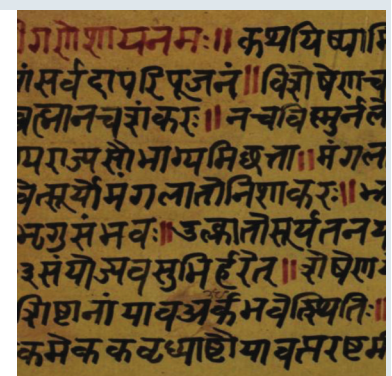 गणेशायनमः॥ कथयिष्यामि
सर्वदापरिपूजनं॥ विशेषेणच
ब्रह्मानचशंकरः॥ नचविस्मुर्नल
राज्यसौभाग्यमिछता॥ मंगल
वेत्सूर्योमंगलातोनिशाकरः॥
भृगुसंभवः॥ उल्कातोसूर्यतनय
संयोज्यवसुभिर्हरेत्॥ शेषेण
शिष्टानां यावअर्कभवेत्स्थितिः॥
कमेककवध्याष्टौयावत्सरष्टम